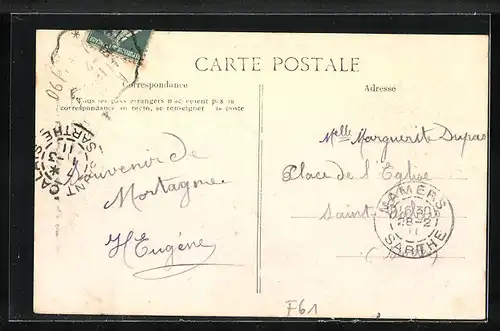 CARTE POSTALE
Correspondance
Adresse
Tous les pays étrangers n'acceptent pas la
correspondance au recto, se renseigner la poste
Souvenir de
Mortagne
Eugène
Melle Marguerite Dupas
Place de l'Eglise
Saint
MAMERS
28-2
SARTHE
SARTHE
F61